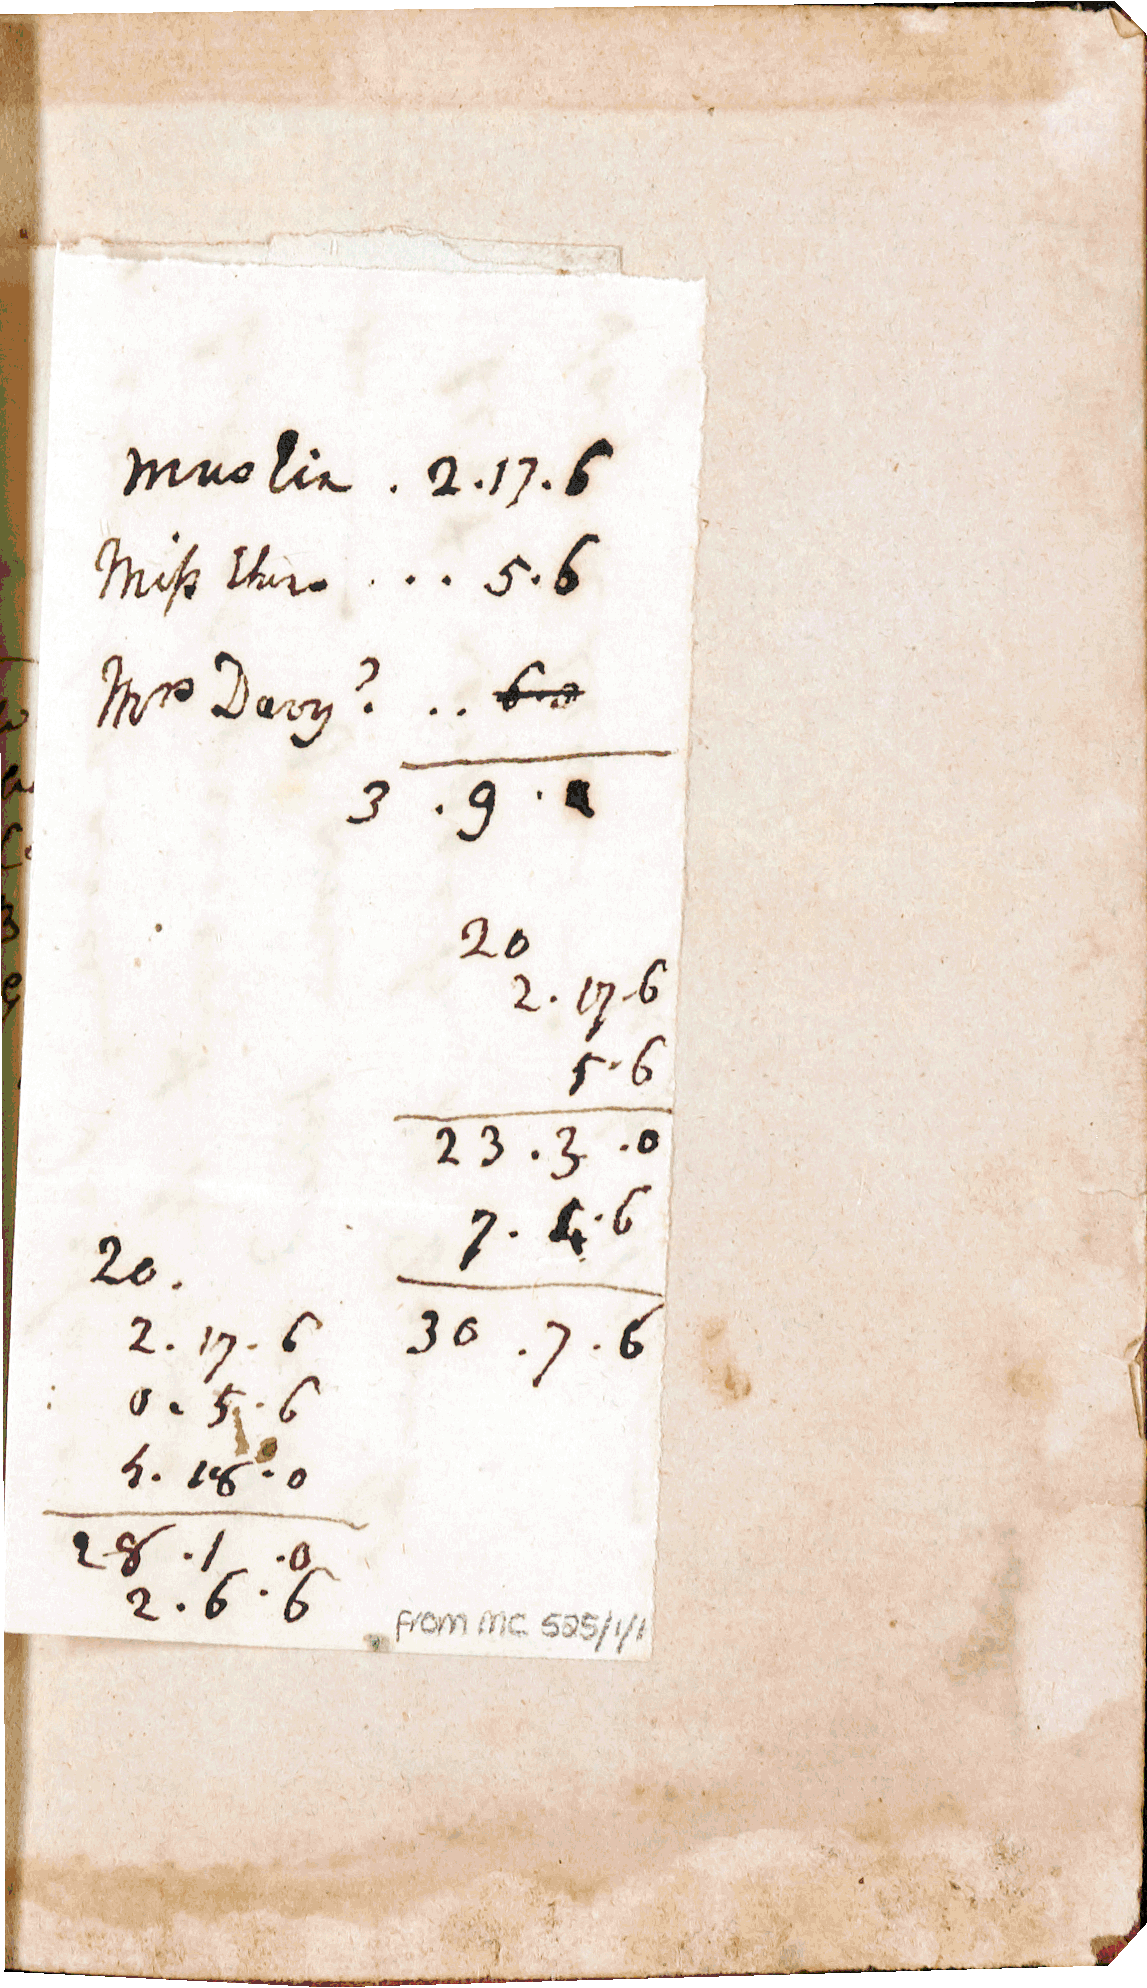 muslin . 2.17.6
Miss ... 5.6
Mrs Davy? .. 6.0
3 . 9 .
20
2. 17.6
5.6
23.3.0
7. 4.6
30.7.6
20.
2. 17. 6
0. 5. 6
4. 18.0
28.1.0
2.6.6
from MC 525/1/1